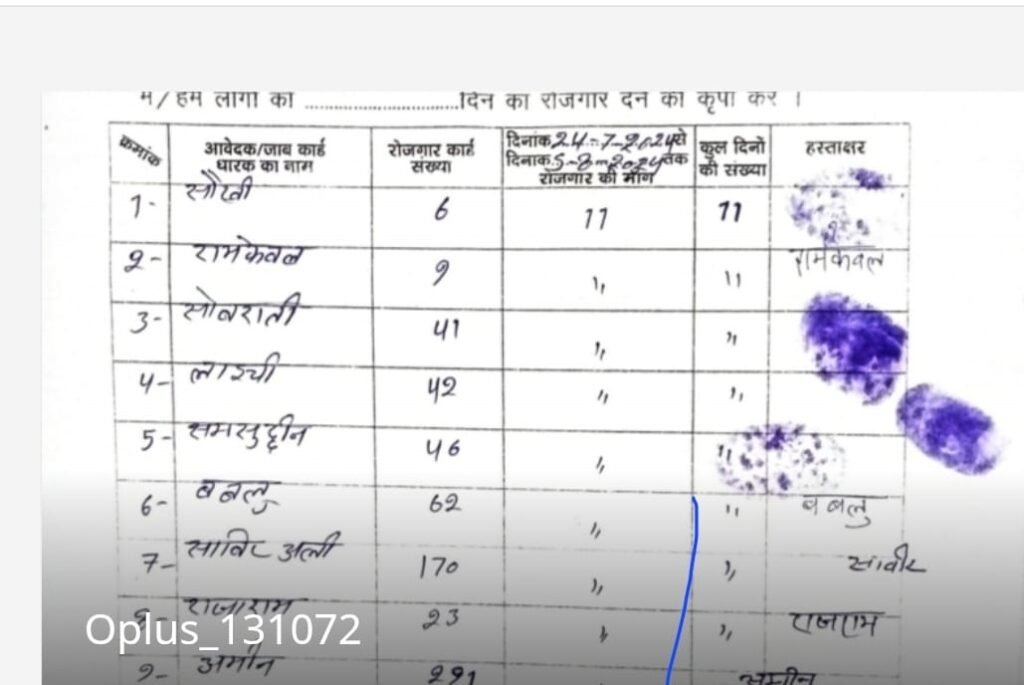 म/हम लोगों को ..............................दिन का रोजगार देने की कृपा करें ।
क्रमांक आवेदक/जाब कार्ड धारक का नाम रोजगार कार्ड संख्या दिनांक 24-7-2024 से दिनांक 5-8-2024 तक रोजगार की माँग कुल दिनो की संख्या हस्ताक्षर
1- सौखी 6 11 11
2- रामकेवल 9 ,, 11 रामकेवल
3- सोबराती 41 ,, ,,
4- 42 ,, ,,
5- समसुद्दीन 46 ,, ,,
6- बबलु 62 ,, ,, बबलु
7- साबिर अली 170 ,, ,, साबीर
8- राजाराम 23 ,, ,, राजाराम
9- अमीन 221 अमीन
Oplus_131072